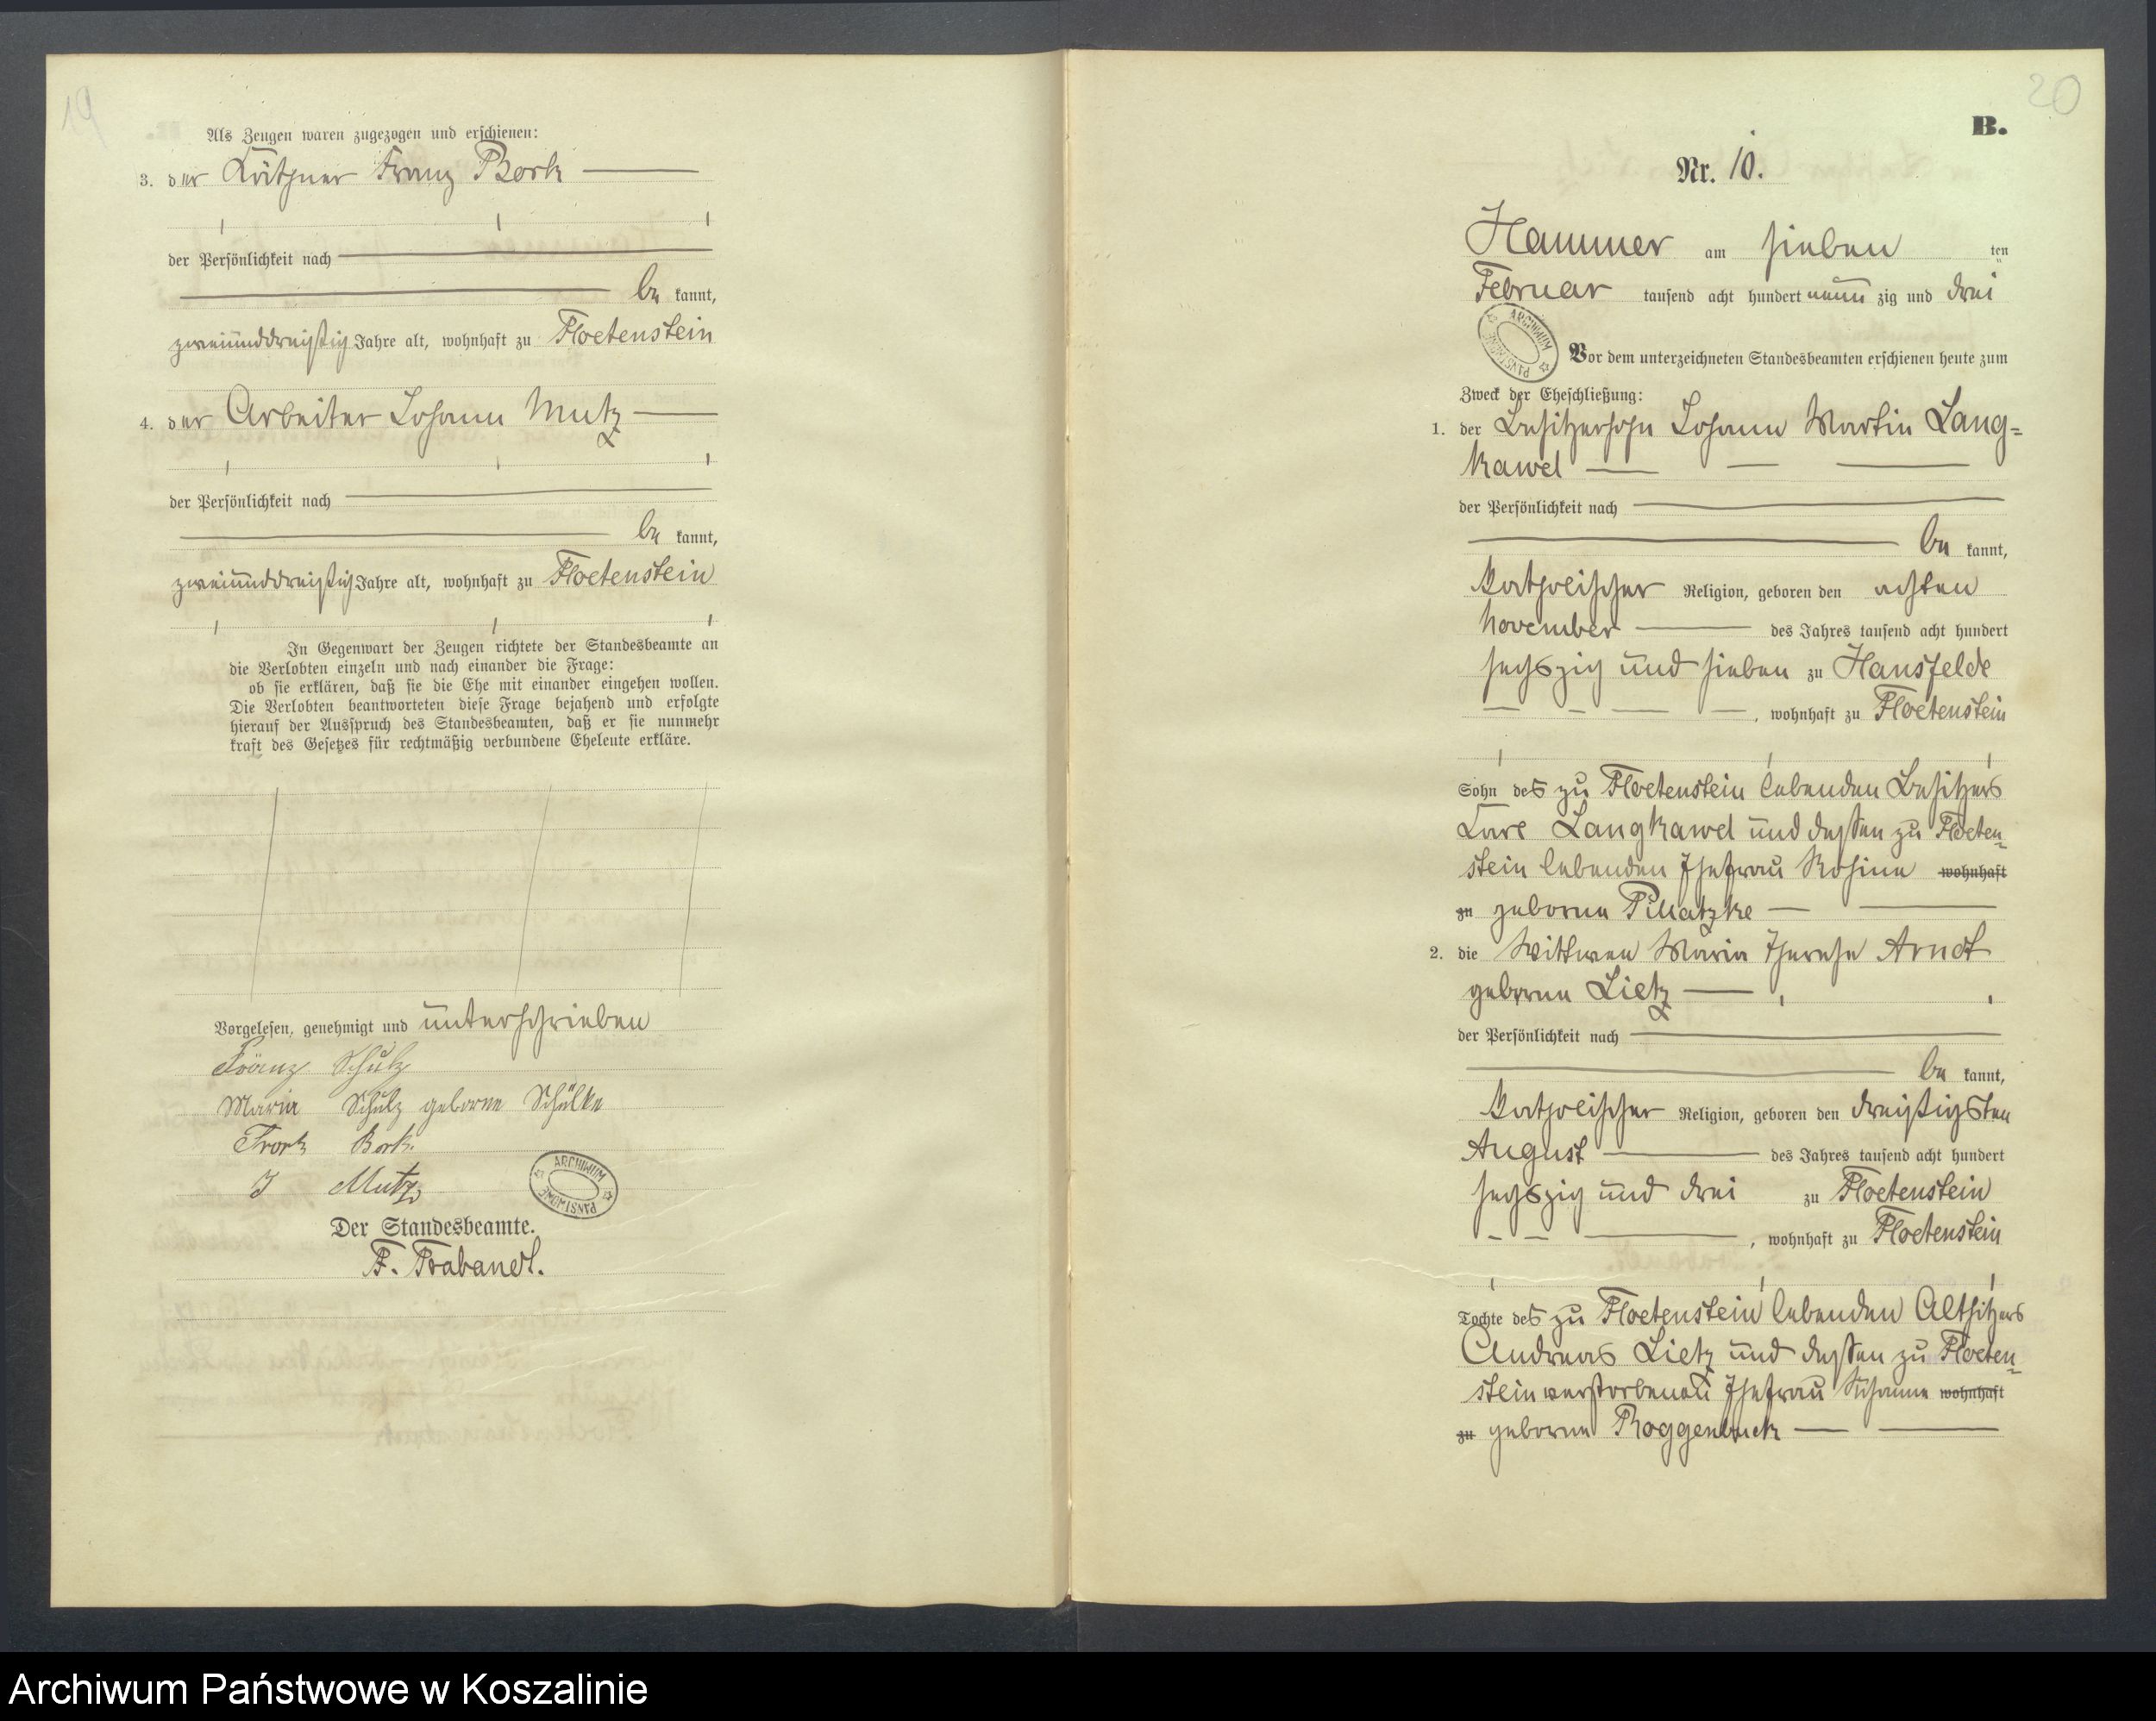 19
Als Zeugen waren zugezogen und erschienen:
3. der Käthner Franz Bork
der Persönlichkeit nach
be kannt,
zweiunddreißig Jahre alt, wohnhaft zu Floetenstein
4. der Arbeiter Johann Mutz
der Persönlichkeit nach
be kannt,
zweiunddreißig Jahre alt, wohnhaft zu Floetenstein
In Gegenwart der Zeugen richtete der Standesbeamte an
die Verlobten einzeln und nach einander die Frage:
ob sie erklären, daß sie die Ehe mit einander eingehen wollen.
Die Verlobten beantworteten diese Frage bejahend und erfolgte
hierauf der Ausspruch des Standesbeamten, daß er sie nunmehr
kraft des Gesetzes für rechtmäßig verbundene Eheleute erkläre.
Vorgelesen, genehmigt und unterschrieben
Franz Schulz
Maria Schulz geborne Schülke
Bork
J Mutz
ARCHIWUM PAŃSTWOWE
Der Standesbeamte.
F. Brabandt.
20
B.
Nr. 10.
Hammer am sieben ten
Februar tausend acht hundert neun zig und drei
ARCHIWUM PAŃSTWOWE
Vor dem unterzeichneten Standesbeamten erschienen heute zum
Zweck der Eheschließung:
1. der Besitzersohn Johann Martin Lang=
kawel
der Persönlichkeit nach
be kannt,
katholischer Religion, geboren den achten
November des Jahres tausend acht hundert
sechszig und sieben zu Hansfelde
, wohnhaft zu Floetenstein
Sohn des zu Floetenstein lebenden Besitzers
Carl Langkawel und dessen zu Floeten=
stein lebenden Ehefrau Rosine wohnhaft
zu geborne Pillatzke
2. die Wittwee Maria Therese Arndt
geborne Lietz
der Persönlichkeit nach
be kannt,
katholischer Religion, geboren den dreißigsten
August des Jahres tausend acht hundert
sechszig und drei zu Floetenstein
, wohnhaft zu Floetenstein
Tochte des zu Floetenstein lebenden Altsitzers
Andreas Lietz und dessen zu Floeten=
stein verstorbenen Ehefrau Susanne wohnhaft
zu geborne Roggenbuck
Archiwum Państwowe w Koszalinie